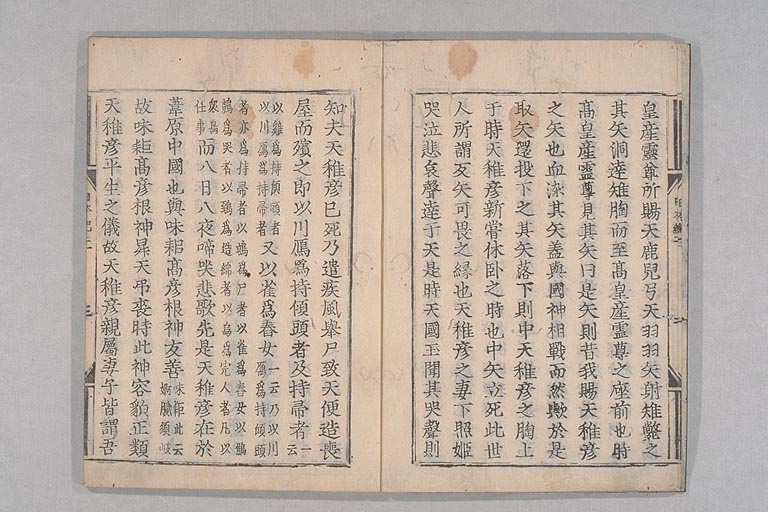 皇産靈尊所賜天鹿兒弓天羽羽矢射雉斃之
其矢洞達雉胸而至髙皇産靈尊之座前也時
髙皇産靈尊見其矢曰是矢則昔我賜天稚彦
之矢也血染其矢盖與國神相戰而然歟於是
取矢還投下之其矢落下則中天稚彦之胸上
于時天稚彦新嘗休卧之時也中矢立死此世
人所謂反矢可畏之縁也天稚彦之妻下照姫
哭泣悲哀聲達于天是時天國玉聞其哭聲則
知夫天稚彦已死乃遣疾風舉尸致天便造喪
屋而殯之即以川鴈爲持傾頭者及持帚者一云
以雞爲持傾頭者
以川鴈爲持帚者
又以雀爲舂女一云乃以川
鴈爲持傾頭
者亦爲持帚者以
鴗爲尸者以雀爲舂女以鷦
鷯爲哭者以鵄爲造綿者以烏爲宍人者凡以
衆鳥
任事
而八日八夜啼哭悲歌先是天稚彦在於
葦原中國也與味耜髙彦根神友善味耜此云
婀膩須岐
故味耜髙彦根神昇天弔喪時此神容貌正類
天稚彦平生之儀故天稚彦親屬妻子皆謂吾